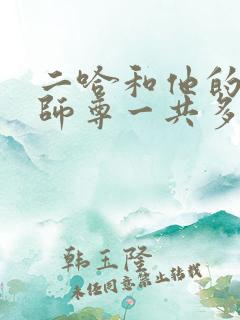 二哈和他的
师尊一共多
韩玉隆
未经同意禁止转载